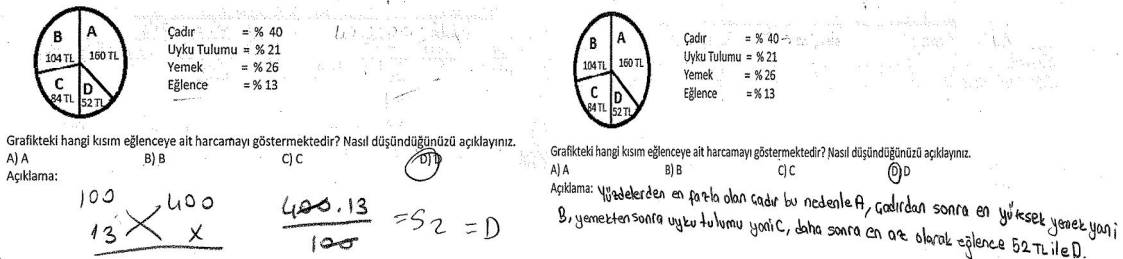 B A
104 TL 160 TL
C D
84 TL 52 TL
Çadır = % 40
Uyku Tulumu = % 21
Yemek = % 26
Eğlence = % 13
Grafikteki hangi kısım eğlenceye ait harcamayı göstermektedir? Nasıl düşündüğünüzü açıklayınız.
A) A B) B C) C D) D
Açıklama:
100 400
13 x
400.13
100
=52 = D
B A
104 TL 160 TL
C D
84 TL 52 TL
Çadır = % 40
Uyku Tulumu = % 21
Yemek = % 26
Eğlence = % 13
Grafikteki hangi kısım eğlenceye ait harcamayı göstermektedir? Nasıl düşündüğünüzü açıklayınız.
A) A B) B C) C D) D
Açıklama: Yüzdelerden en fazla olan çadır bu nedenle A, çadırdan sonra en yüksek yemek yani
B, yemekten sonra uyku tulumu yani C, daha sonra en az olarak eğlence 52 TL ile D.